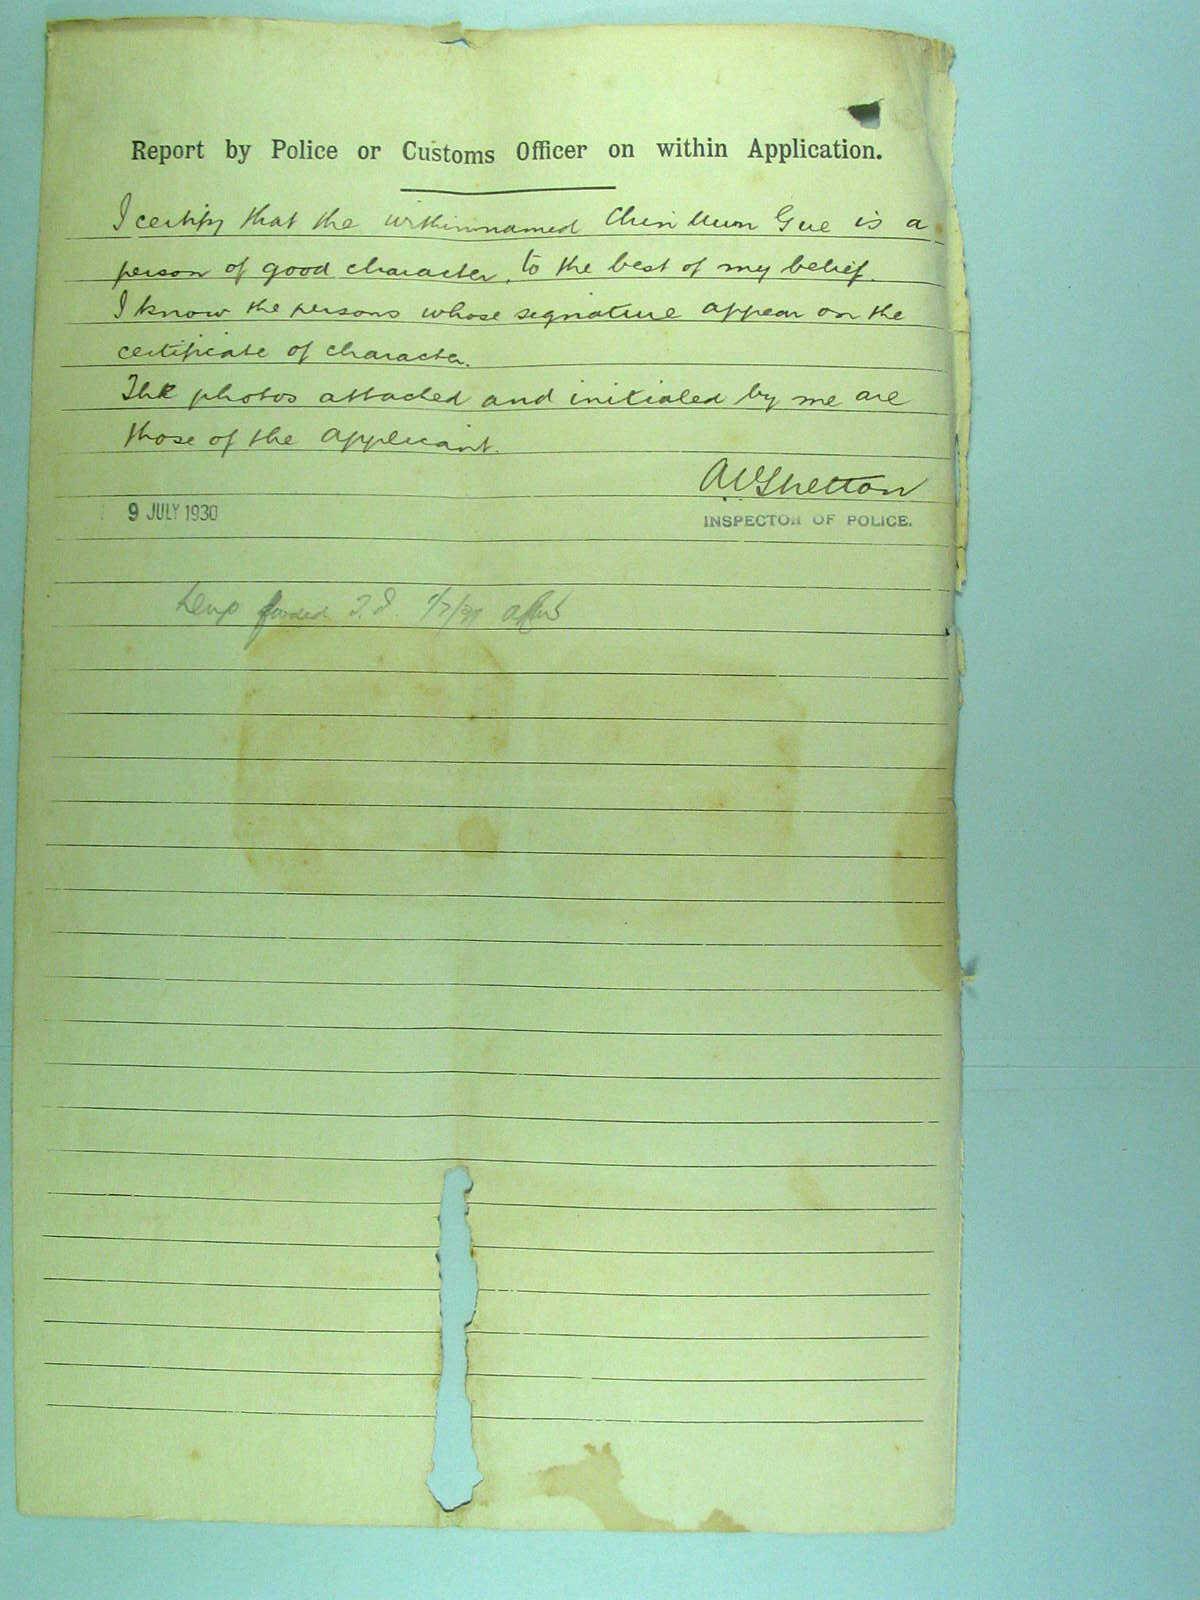 Report by Police or Customs Officer on within Application.
I certify that the withinnamed Chin Mun Gue is a
person of good character, to the best of my belief.
I know the persons whose signature appear on the
certificate of character.
The photos attached and initialed by me are
those of the applicant.
A W Shelton
9 JULY 1930
INSPECTOR OF POLICE.